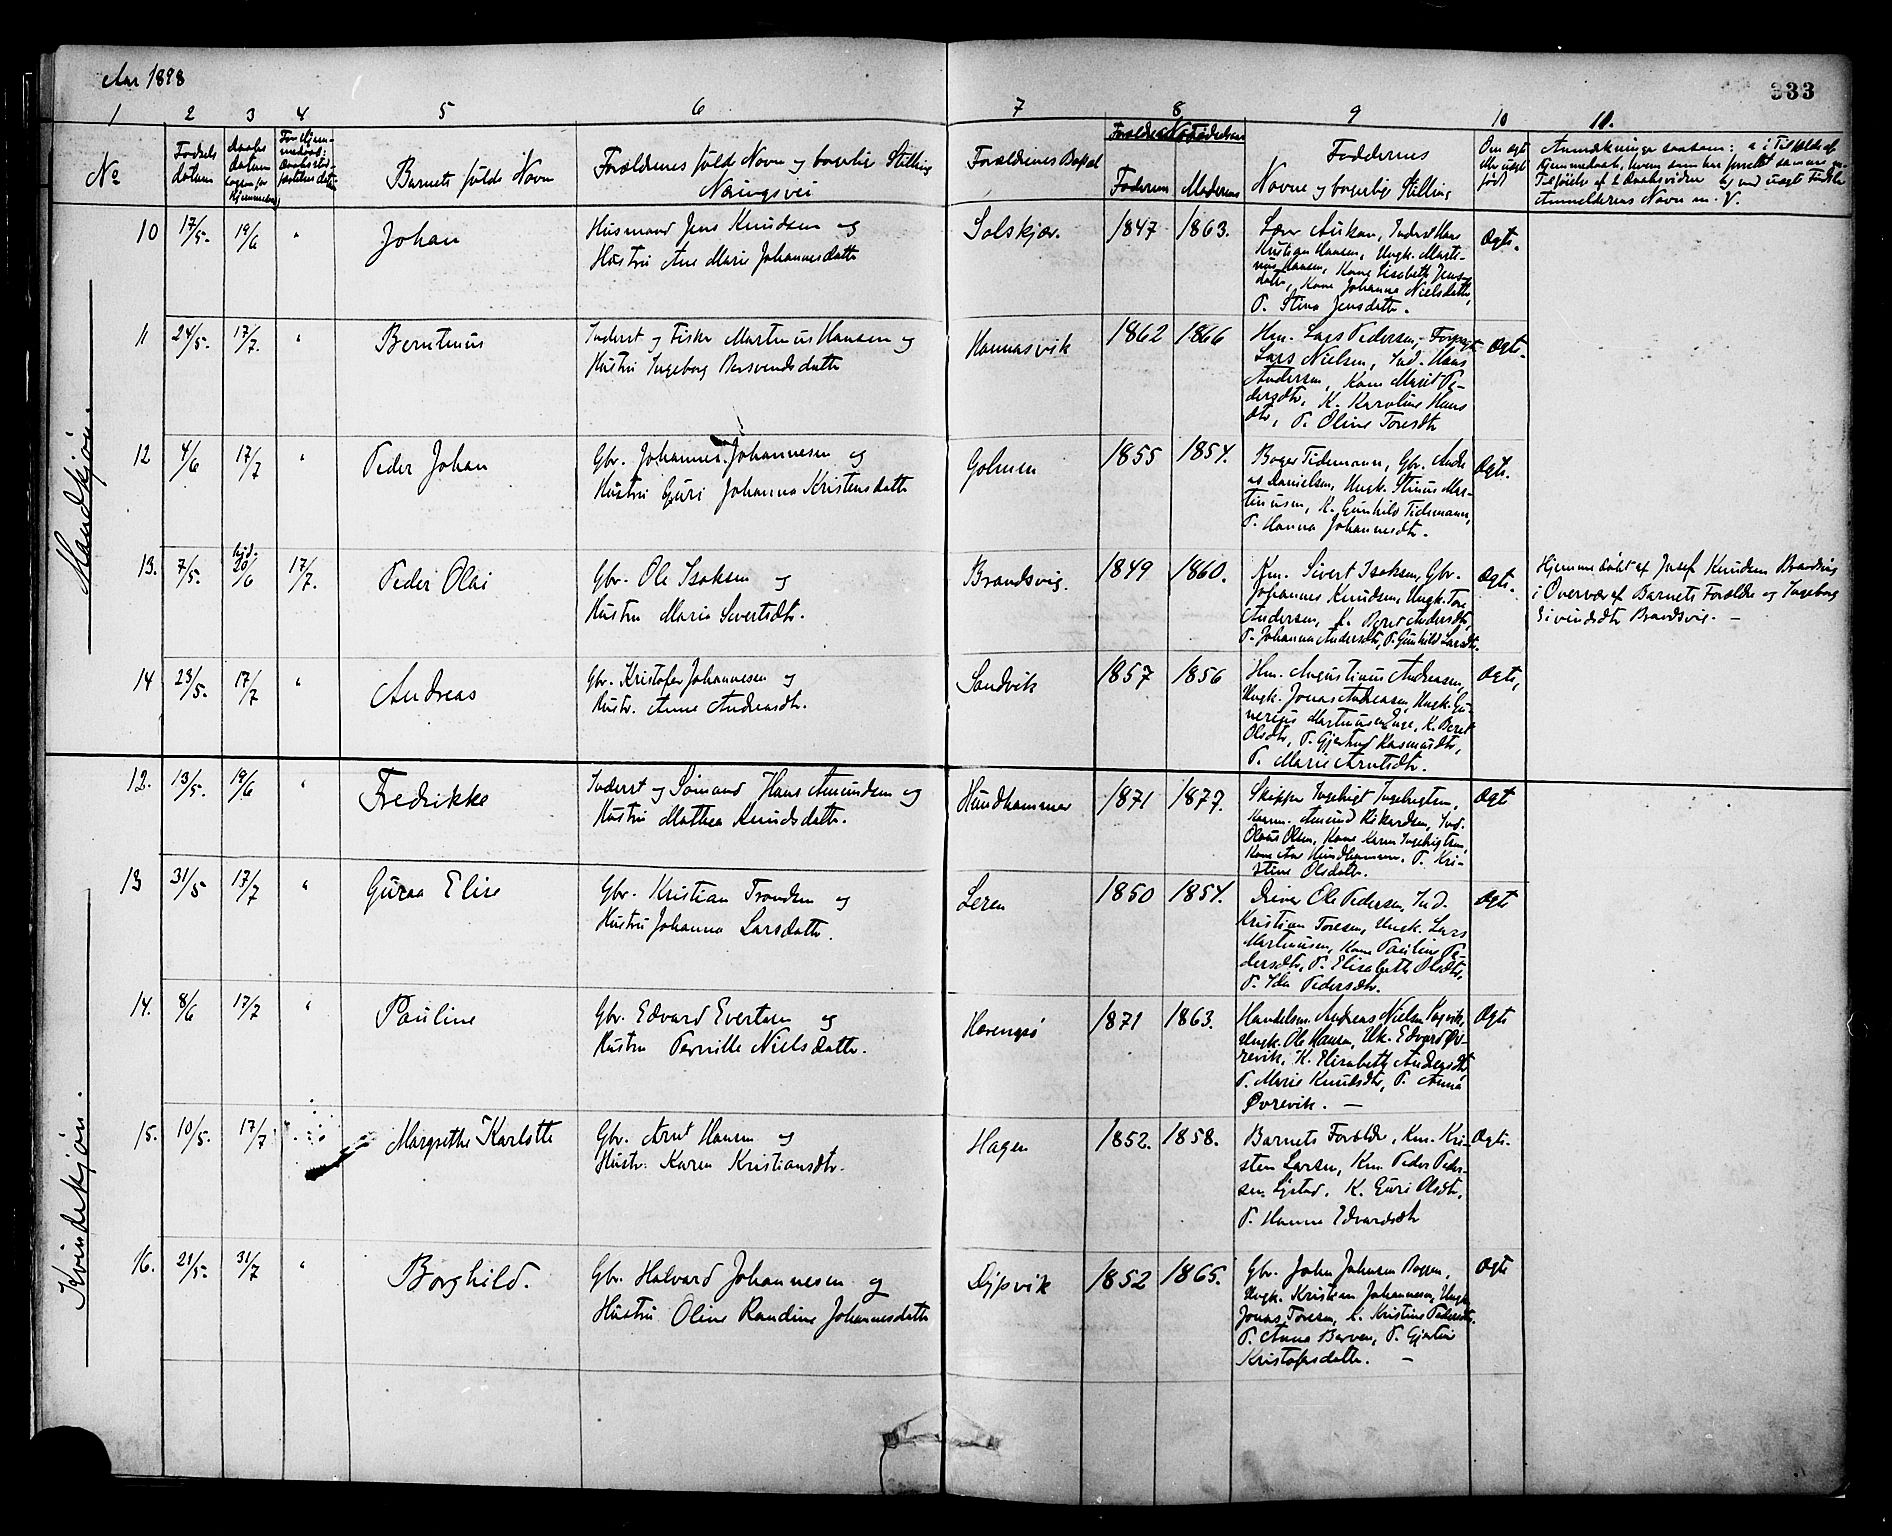 Aar 1898
333
1 2 3 4 5 6 7 8 9 10 11.
No
Fødsels
datum
Daabs
datum
Barnets fulde Navn
Forældrenes fuld Navn og borgerlige Stilling
Næringsvei
Forældrenes Bopæl
Faderens
Moderens
Faddernes
Navne og borgerlige Stilling
Om ægt
eller uægt
født
Anmeldereus Navn m. V.
Mandkjøn.
10 17/5. 19/6 " Johan
Husmand Jens Knudsen og
Hustru Ane Marie Johannesdatter
Solskjær. 1847 1863.
Lær Aukan, Inderst Hans
Kristian Hansen, Ungk. Marti-
nus Hansen, Kone Lisabeth Jens-
datr, Kone Johanna Nielsdatter,
P. Stina Jensdatter.
Ægte.
11 24/5. 17/7. " Berntinus
Inderst og Fisker Martinus Hansen og
Hustru Ingeborg Bersvendsdatter
Hannasvik 1862 1866
Hm. Lars Pedersen, Forpagt
Lars Nielsen, Ind. Hans
Andersen, Kone Marit Pe-
dersdtr, K. Karoline Hans
dtr, P. Oline Toresdtr
Ægte.
12 4/6 17/7 " Peder Johan
Gbr. Johannes Johannesen og
Hustru Guri Johanna Kristensdatter
Golmen 1855 1854.
Bager Tidemann, Gbr. Andre
as Danielsen, Ungk. Stinus Mar-
tinusen, K. Gunhild Tidemann,
P. Hanna Johannesdtr.
Ægte.
13. 7/5. hjd. 20/6 17/7. Peder Olai
Gbr. Ole Isaksen og
Hustru Marie Sivertsdtr.
Brandsvig. 1849 1860.
Km. Sivert Isaksen, Gbr.
Johannes Knudsen, Ungk. Tore
Andersen, K. Beret Andersdtr,
P. Johanna Andersdtr, P. Gunhild Larsdtr.
Ægte.
Hjemmedøbt af Josef Knudsen Brandsvig
i Overvær af Barnets Forældre og Ingeborg
Eivindsdtr Brandsvig. —
14 23/5. 17/7 " Andreas
Gbr. Kristofer Johannesen og
Hustr. Anne Andreasdtr.
Sandvik 1857 1856
Hm. Augustinus Andreasen,
Ungk. Jonas Andreasen, Ungk. Gu-
nerius Martinusen Enge, K. Beret
Olsdtr, P. Gjertrud Rasmusdtr,
P. Marie Arntsdtr.
Ægte,
Kvindekjøn.
12. 13/5. 19/6 " Fredrikke
Inderst og Sømand Hans Amundsen og
Hustru Mathea Knudsdatter.
Hundhammer 1871 1877.
Skipper Ingebrigt Ingebrigtsen,
Kaarm. Amund Rikardsen, Ind.
Olaus Olsen, Kone Karen Ingebrigtsen,
Kone Ane Hundhammer, P. Kri-
stine Olsdatter.
Ægt
13 31/5 17/7 " Guraa Elise
Gbr. Kristian Trondsen og
Hustru Johanna Larsdatter.
Leren 1850 1854.
Dreier Ole Pedersen, Ind.
Kristian Toresen, Ungk. Lars
Martinusen, Kone Pauline Pe-
dersdtr, P. Elisabeth Olsdtr,
P. Ida Pedersdtr.
Ægte
14. 8/6 17/7 " Pauline
Gbr. Edvard Evertsen og
Hustru Pernille Nielsdatter.
Herengsø 1871 1863.
Handelsm. Andreas Nielsen Vaagvik,
Ungk. Ole Hansen, Uk. Edvard Øv-
revik, K. Elisabeth Andersdtr
P. Marie Knudsdtr, P. Anna
Øvrevik. —
Ægte
15. 10/5. 17/7 " Margrethe Karlotte
Gbr. Arnt Hansen og
Hustr. Karen Kristiansdtr.
Hagen 1852. 1858.
Barnets Forældre, Km. Kri-
sten Larsen, Km. Peder Peder-
sen Lystad, K. Guri Olsdtr,
P. Hanna Edvardsdtr
Ægte.
16. 21/5. 31/7 " Borghild.
Gbr. Halvard Johannesen og
Hustru Oline Randine Johannesdatter
Djypvik 1852 1865.
Gbr. John Johnsen Bogen,
Ungk. Kristian Johannesen, Ungk.
Jonas Toresen, K. Kristine Pedersdtr,
P. Anna Berven, P. Gjertine
Kristofersdatter. —
Ægte